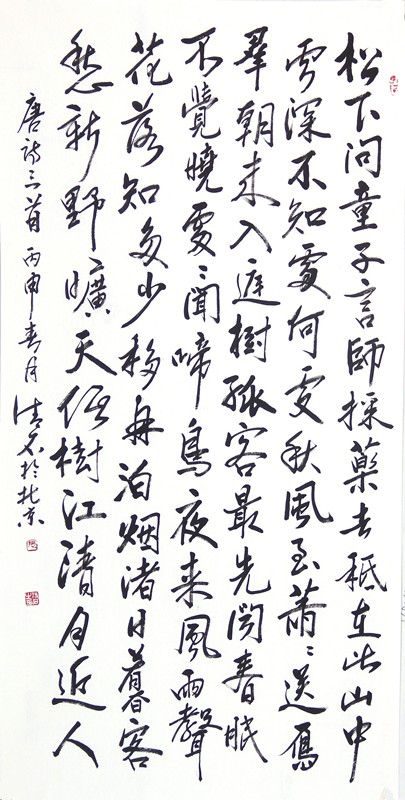 松下问童子言師採藥去秪在此山中
雲深不知處何處秋風至蕭々送雁
羣朝来入庭樹孤客最先闻春眠
不覺曉處々聞啼鳥夜来風雨聲
花落知多少移舟泊烟渚日暮客
愁新野曠天低樹江清月近人
唐诗三首丙申春月清於北京